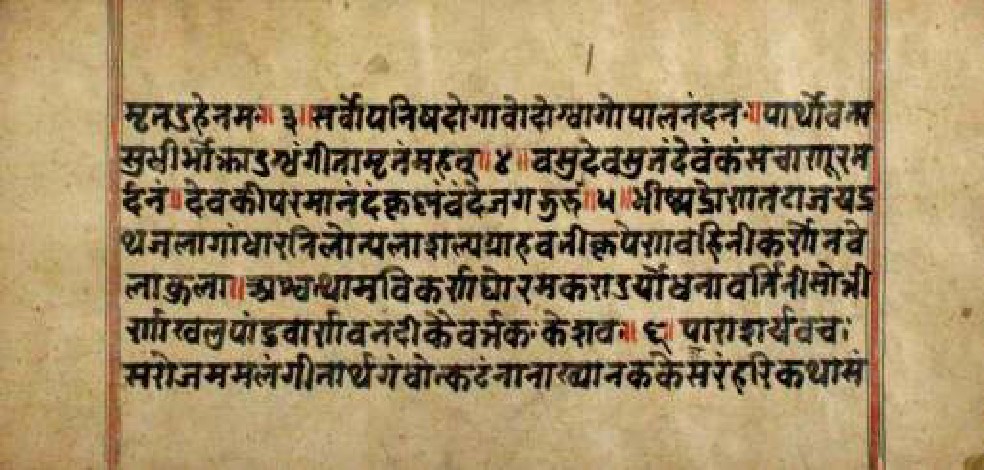 मृतऽहेनमः॥३॥सर्वोपनिषदोगावोदोग्धागोपालनंदनः॥पार्थोवत्स
सुधीर्भोक्ताऽग्धंगीतामृतंमहत्॥४॥वसुदेवसुतंदेवंकंसचाणूरम
र्दनं॥देवकीपरमानंदंकृष्णंवंदेजगद्गुरुं॥५॥भीष्मद्रोणातटाजयद्र
थजलागांधारनिलोत्पलाशल्यग्राहवतीकृपेणवहिनीकर्णेनवे
लाकुला॥अश्वत्थामविकर्णघोरमकराऽर्योधनावर्तिनीसोत्ती
र्णाखलुपांडवार्णवनदीकैवर्त्तकःकेशवः॥६॥पाराशर्यवचः
सरोजममलंगीतार्थगंधोत्कटंनानाख्यानककेसरंहरिकथासं